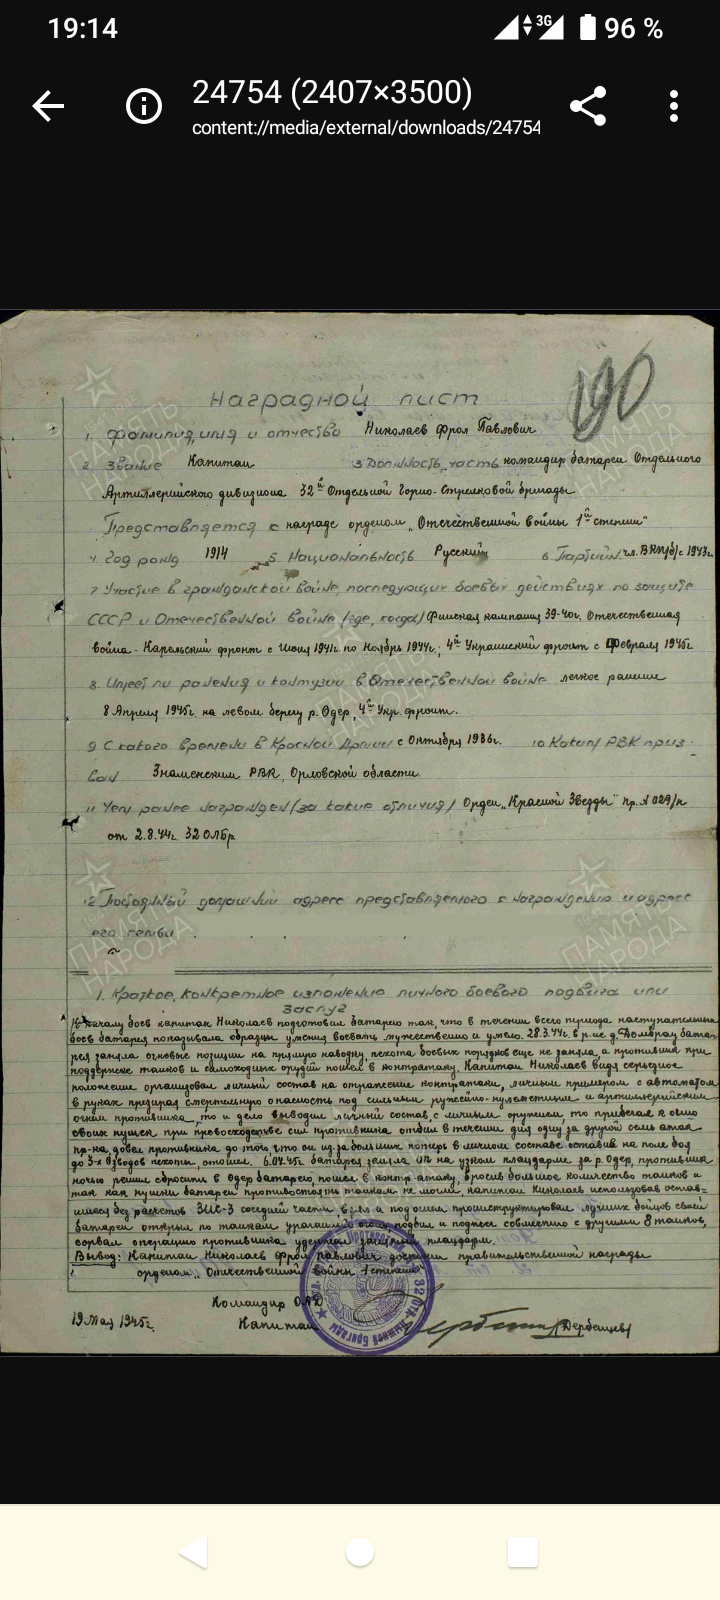 19:14
3G 96 %
24754 (2407×3500)
content://media/external/downloads/24754
190
Наградной лист
1. Фамилия, имя и отчество Николаев Фрол Павлович
2. Звание Капитан 3 Должность, часть командир батареи Отдельного
Артиллерийского дивизиона 32й Отдельной Горно-Стрелковой бригады
Представляется к награде орденом "Отечественной войны 1й степени"
4. Год рожд. 1914 5. Национальность Русский 6 Партийн. чл. ВКП/б/ с 1943г.
7 Участие в гражданской войне, последующих боевых действиях по защите
СССР и Отечественной войне (где, когда) Финская кампания 39-40г. Отечественная
война - Карельский фронт с Июня 1941г. по Ноябрь 1944г.; 4й Украинский фронт с Февраля 1945г.
8. Имеет ли ранения и контузии в Отечественной войне легкое ранение
8 Апреля 1945г. на левом берегу р. Одер, 4й Укр. фронт.
9 С какого времени в Красной Армии с Октября 1936г. 10 Каким РВК приз-
ван Знаменским РВК, Орловской области.
11 Чем ранее награжден (за какие отличия) Орден "Красной Звезды" пр. №029/н
от 2.8.44г. 32 ОЛБр
12 Постоянный домашний адрес представляемого к награждению и адрес
его семьи
1. Краткое, конкретное изложение личного боевого подвига или
заслуг
К началу боев капитан Николаев подготовил батарею так, что в течении всего периода наступательных
боев батарея показывала образцы умения воевать мужественно и умело. 28.3.44г. в р-не д. Домбрау бата-
рея заняла огневые позиции на прямую наводку, пехота боевых порядков еще не заняла, а противник при
поддержке танков и самоходных орудий пошел в контратаку. Капитан Николаев видя серьезное
положение организовал личный состав на отражение контратаки, личным примером с автоматом
в руках презирая смертельную опасность под сильным ружейно-пулеметным и артиллерийским
огнем противника, то и дело выводил личный состав, с личным оружием, то прибегая к огню
своих пушек при превосходстве сил противника отбил в течении дня одну за другой семь атак
пр-ка, довел противника до того, что он из-за больших потерь в личном составе оставив на поле боя
до 3-х взводов пехоты, отошел. 6.04.45г. батарея заняла ОП на узком плацдарме за р. Одер, противник
ночью решил сбросить в Одер батарею, пошел в контратаку, бросив большое количество танков и
так как пушки батареи противостоять танкам не могли, капитан Николаев использовав остав-
шиеся без расчетов ЗИС-3 соседней части, взял и под огнем проинструктировал лучших бойцов своей
батареи открыл по танкам ураганный огонь, подбил и поджег совместно с другими 8 танков,
сорвал операцию противника удержал занятый плацдарм.
Вывод: Капитан Николаев Фрол Павлович достоин правительственной награды
орденом "Отечественной войны 1 степени
19 Мая 1945г. Командир ОАД
Капитан /Дербенцев/
ПАМЯТЬ
НАРОДА
ПАМЯТЬ
НАРОДА
ПАМЯТЬ
НАРОДА
ПАМЯТЬ
НАРОДА